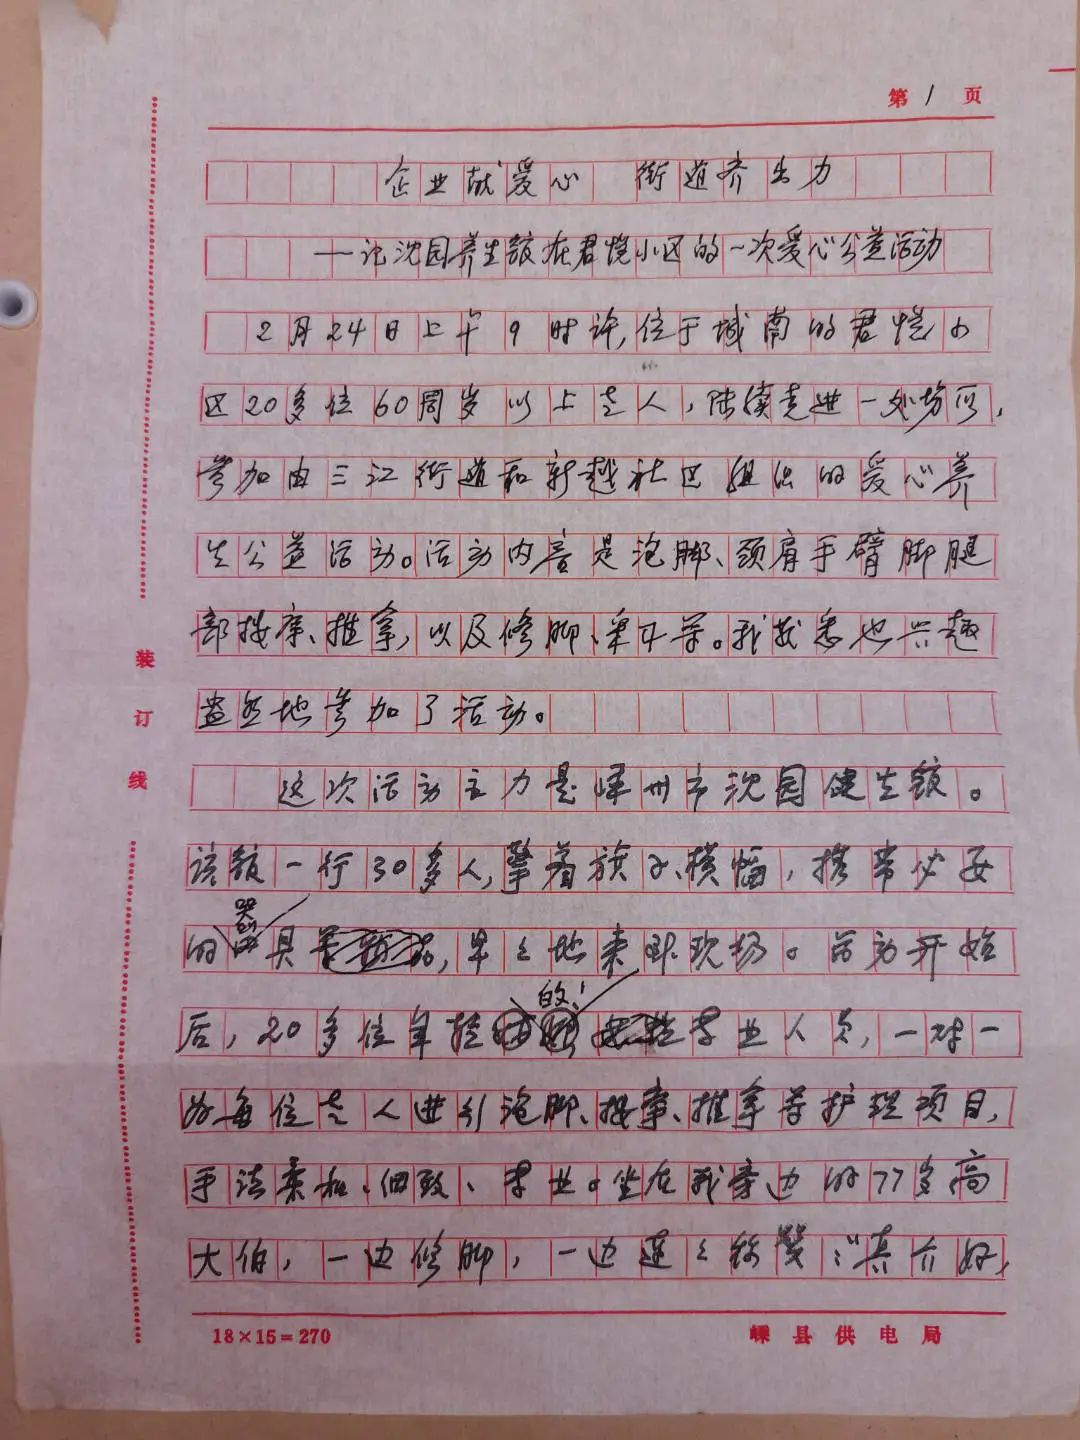 第1页
企业献爱心 街道齐出力
——记沈园养生馆在君悦小区的一次爱心公益活动
2月24日上午9时许,位于城南的君悦小
区20多位60周岁以上老人,陆续走进一处场所,
参加由三江街道和新越社区组织的爱心养
生公益活动。活动内容是泡脚、颈肩手臂脚腿
部按摩、推拿,以及修脚、采耳等。我获悉也兴趣
盎然地参加了活动。
这次活动主力是嵊州市沈园健生馆。
该馆一行30多人,擎着旗子、横幅,携带必要
的器具,早々地来到现场。活动开始
后,20多位年轻的专业人员,一对一
为每位老人进行泡脚、按摩、推拿等护理项目,
手法柔和、细致、专业。坐在我旁边的77多高
大伯,一边修脚,一边连々称赞:“真个好,
装订线
18×15=270
嵊县供电局